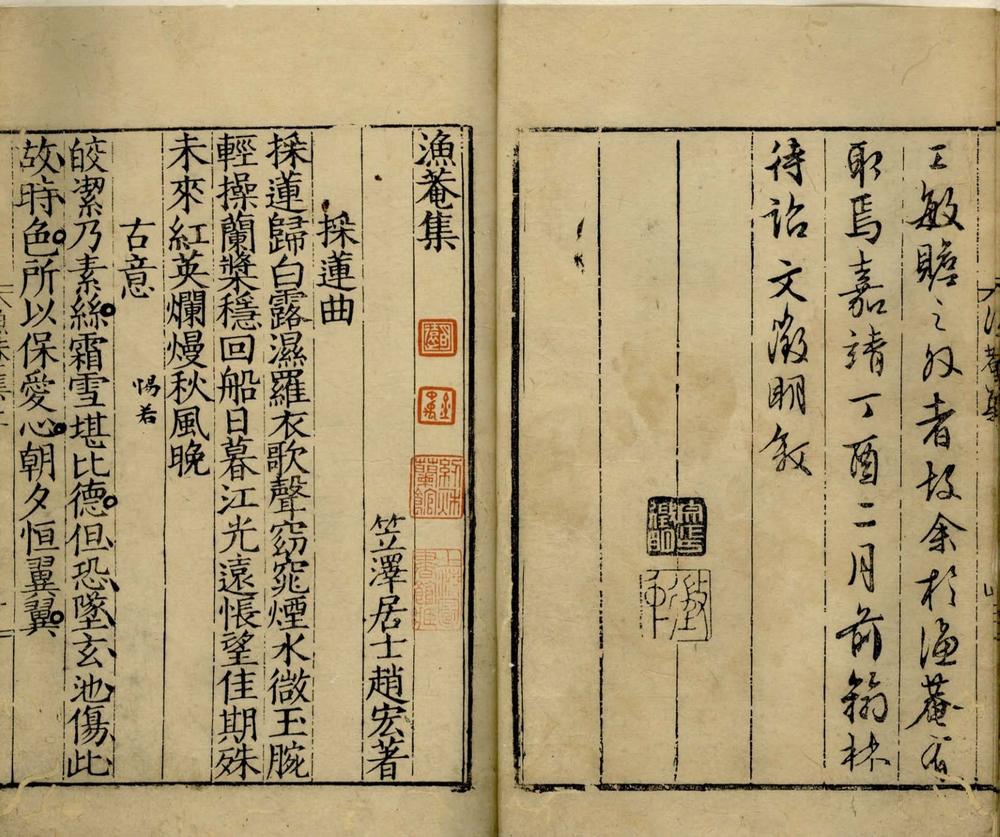 工敏贍之外者故余於漁菴有
取焉嘉靖丁酉二月前翰林
待詔文徵明敘
漁菴集
笠澤居士趙宏著
採蓮曲
採蓮歸白露濕羅衣歌聲窈窕煙水微玉腕
輕操蘭槳穩回船日暮江光遠悵望佳期殊
未來紅英爛熳秋風晚
古意
惕若
皎潔乃素絲霜雪堪比德但恐墜玄池傷此
故時色所以保愛心朝夕恒翼翼